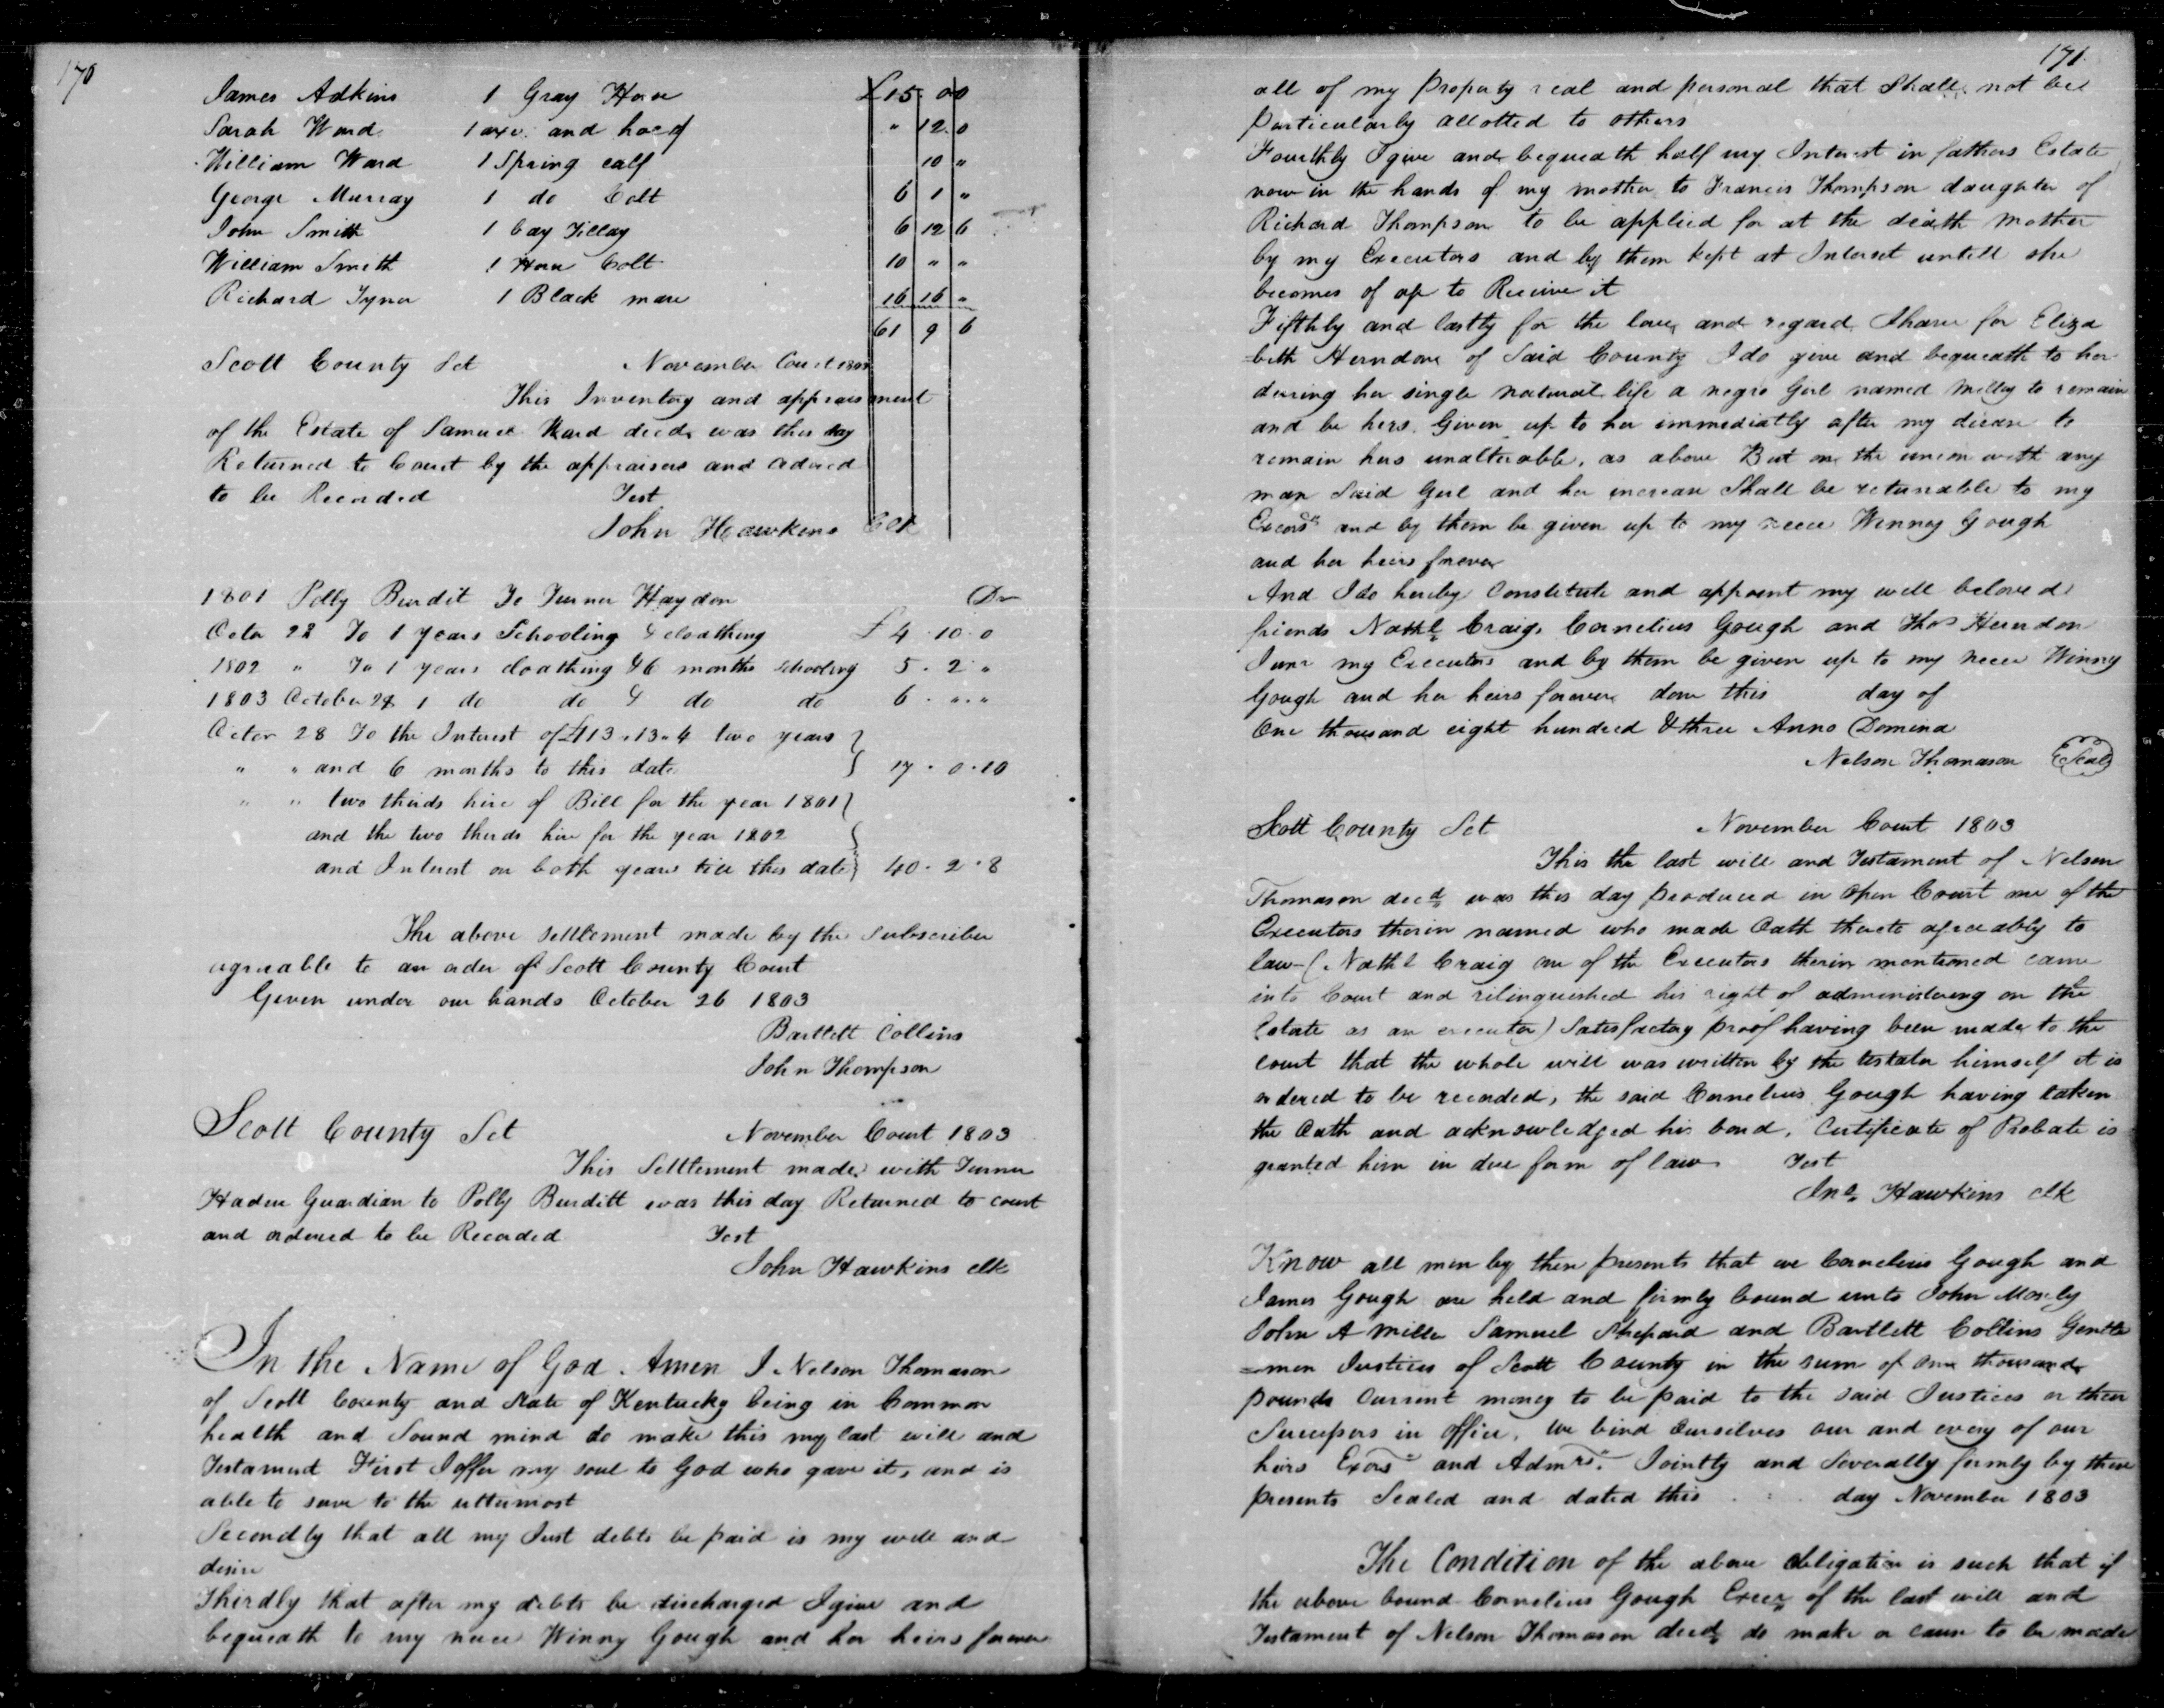 170
James Adkins 1 Gray Horse £15.0 0
Sarah Ward 1 axe and hoe 〃 12 0
William Ward 1 Spring calf 10 〃
George Murray 1 do Colt 6 1 〃
John Smith 1 bay Filley 6 12 6
William Smith 1 Horse Colt 10 〃 〃
Richard Tyner 1 Black mare 16 16 〃
61 9 6
Scott County Sct November Court
This Inventory and appraisment
of the Estate of Samuel Ward decd. was this day
Returned to Court by the appraisers and ordered
to be Recorded Test
John Hawkins Clk
1801 Polly Burdit To Turner Haydon Dr
Octor 28 To 1 years Schooling & cloathing £ 4 . 10 . 0
1802 〃 To 1 years cloathing & 6 months schooling 5 . 2 〃
1803 October 28 1 do do & do do 6 . 〃 . 〃
Octor 28 To the Interest of £113.13.4 two years
〃 〃 and 6 months to this date 17 . 0 . 10
〃 〃 two thirds hire of Bill for the year 1801
and the two thirds hire for the year 1802
and Interest on both years till this date 40 . 2 . 8
The above settlement made by the Subscriber
agreable to an order of Scott County Court
Given under our hands October 26 1803
Bartlett Collins
John Thompson
Scott County Sct November Court 1803
This Settlement made with Turner
Haden Guardian to Polly Burditt was this day Returned to court
and ordered to be Recorded Test
John Hawkins clk
In the Name of God Amen I Nelson Thomason
of Scott County and State of Kentucky being in Common
health and Sound mind do make this my last will and
Testament First I offer my soul to God who gave it, and is
able to save to the uttermost
Secondly that all my Just debts be paid is my will and
desire
Thirdly that after my debts be discharged I give and
bequeath to my neice Winny Gough and her heirs forever
171
all of my property real and personal that Shall not be
particularly allotted to others
Fourthly I give and bequeath half my Interest in fathers Estate
now in the hands of my mother to Francis Thompson daughter of
Richard Thompson to be applied for at the death mother
by my Executors and by them kept at Interest untill she
becomes of age to Receive it
Fifthly and lastly for the love and regard I have for Eliza
=beth Herndone of Said County I do give and bequeath to her
during her single natural life a negro Girl named Milley to remain
and be hers Given up to her immediatly after my decease to
remain hers unalterable, as above But on the union with any
man Said Girl and her increase Shall be returnable to my
Excors and by them be given up to my neece Winney Gough
and her heirs forever
And I do hereby Constitute and appoint my well beloved
friends Nathl Craig, Cornelius Gough and Thos Herndon
Junr my Executors and by them be given up to my neece Winny
Gough and her heirs forever done this day of
One thousand eight hundred & three Anno Domino
Nelson Thomason Seal
Scott County Sct November Court 1803
This the last will and Testament of Nelson
Thomason decd was this day produced in open Court one of the
Executors therin named who made Oath thereto agreeably to
law (Nathl Craig one of the Executors therin mentioned came
into Court and rilinquished his right of administering on the
Estate as an executor) Satisfactory proof having been made to the
court that the whole will was written by the testator himself it is
ordered to be recorded, the said Cornelius Gough having taken
the Oath and acknowledged his bond, Certificate of Probate is
granted him in due form of law Test
Jno Hawkins clk
Know all men by these presents that we Cornelius Gough and
James Gough are held and firmly bound unto John Mosely
John A Miller Samuel Shepard and Bartlett Collins Gentle
=men Justices of Scott County in the sum of one thousand
pounds Current money to be paid to the said Justices or their
Successors in office, we bind ourselves our and every of our
heirs Exors and Admrs. Jointly and Severally firmly by these
presents Sealed and dated this day November 1803
The Condition of the above obligation is such that if
the above bound Cornelius Gough Execr of the last will and
Testament of Nelson Thomason decd do make or cause to be made